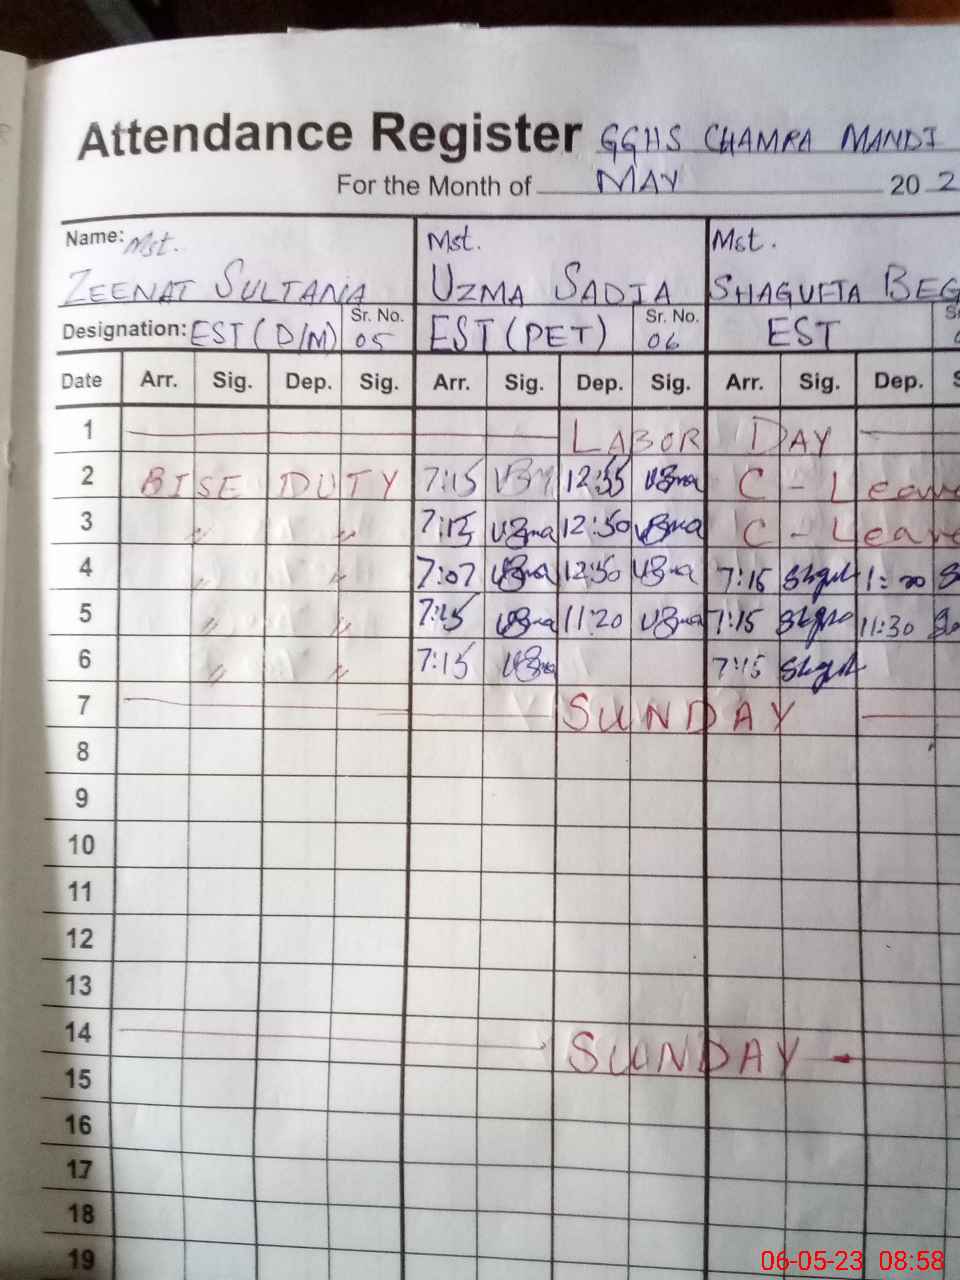 Attendance Register GGHS CHAMPA MANDI
For the Month of MAY 20 2
Name: Mst. Mst. Mst.
ZEENAT SULTANA UZMA SADIA SHAGUFTA BEG
Designation: EST (D/M) Sr. No. 05 EST (PET) Sr. No. 06 EST
Date Arr. Sig. Dep. Sig. Arr. Sig. Dep. Sig. Arr. Sig. Dep. S
1 LABOR DAY
2 BISE DUTY 7:15 12:55 Uzma C - Leave
3 " " 7:15 Uzma 12:50 Uzma C - Leave
4 " " 7:07 Uzma 12:50 Uzma 7:15
5 " " 7:15 Uzma 11:20 Uzma 7:15 11:30
6 " " 7:15 Uzma 7:15
7 SUNDAY
8
9
10
11
12
13
14 SUNDAY
15
16
17
18
19
06-05-23 08:58